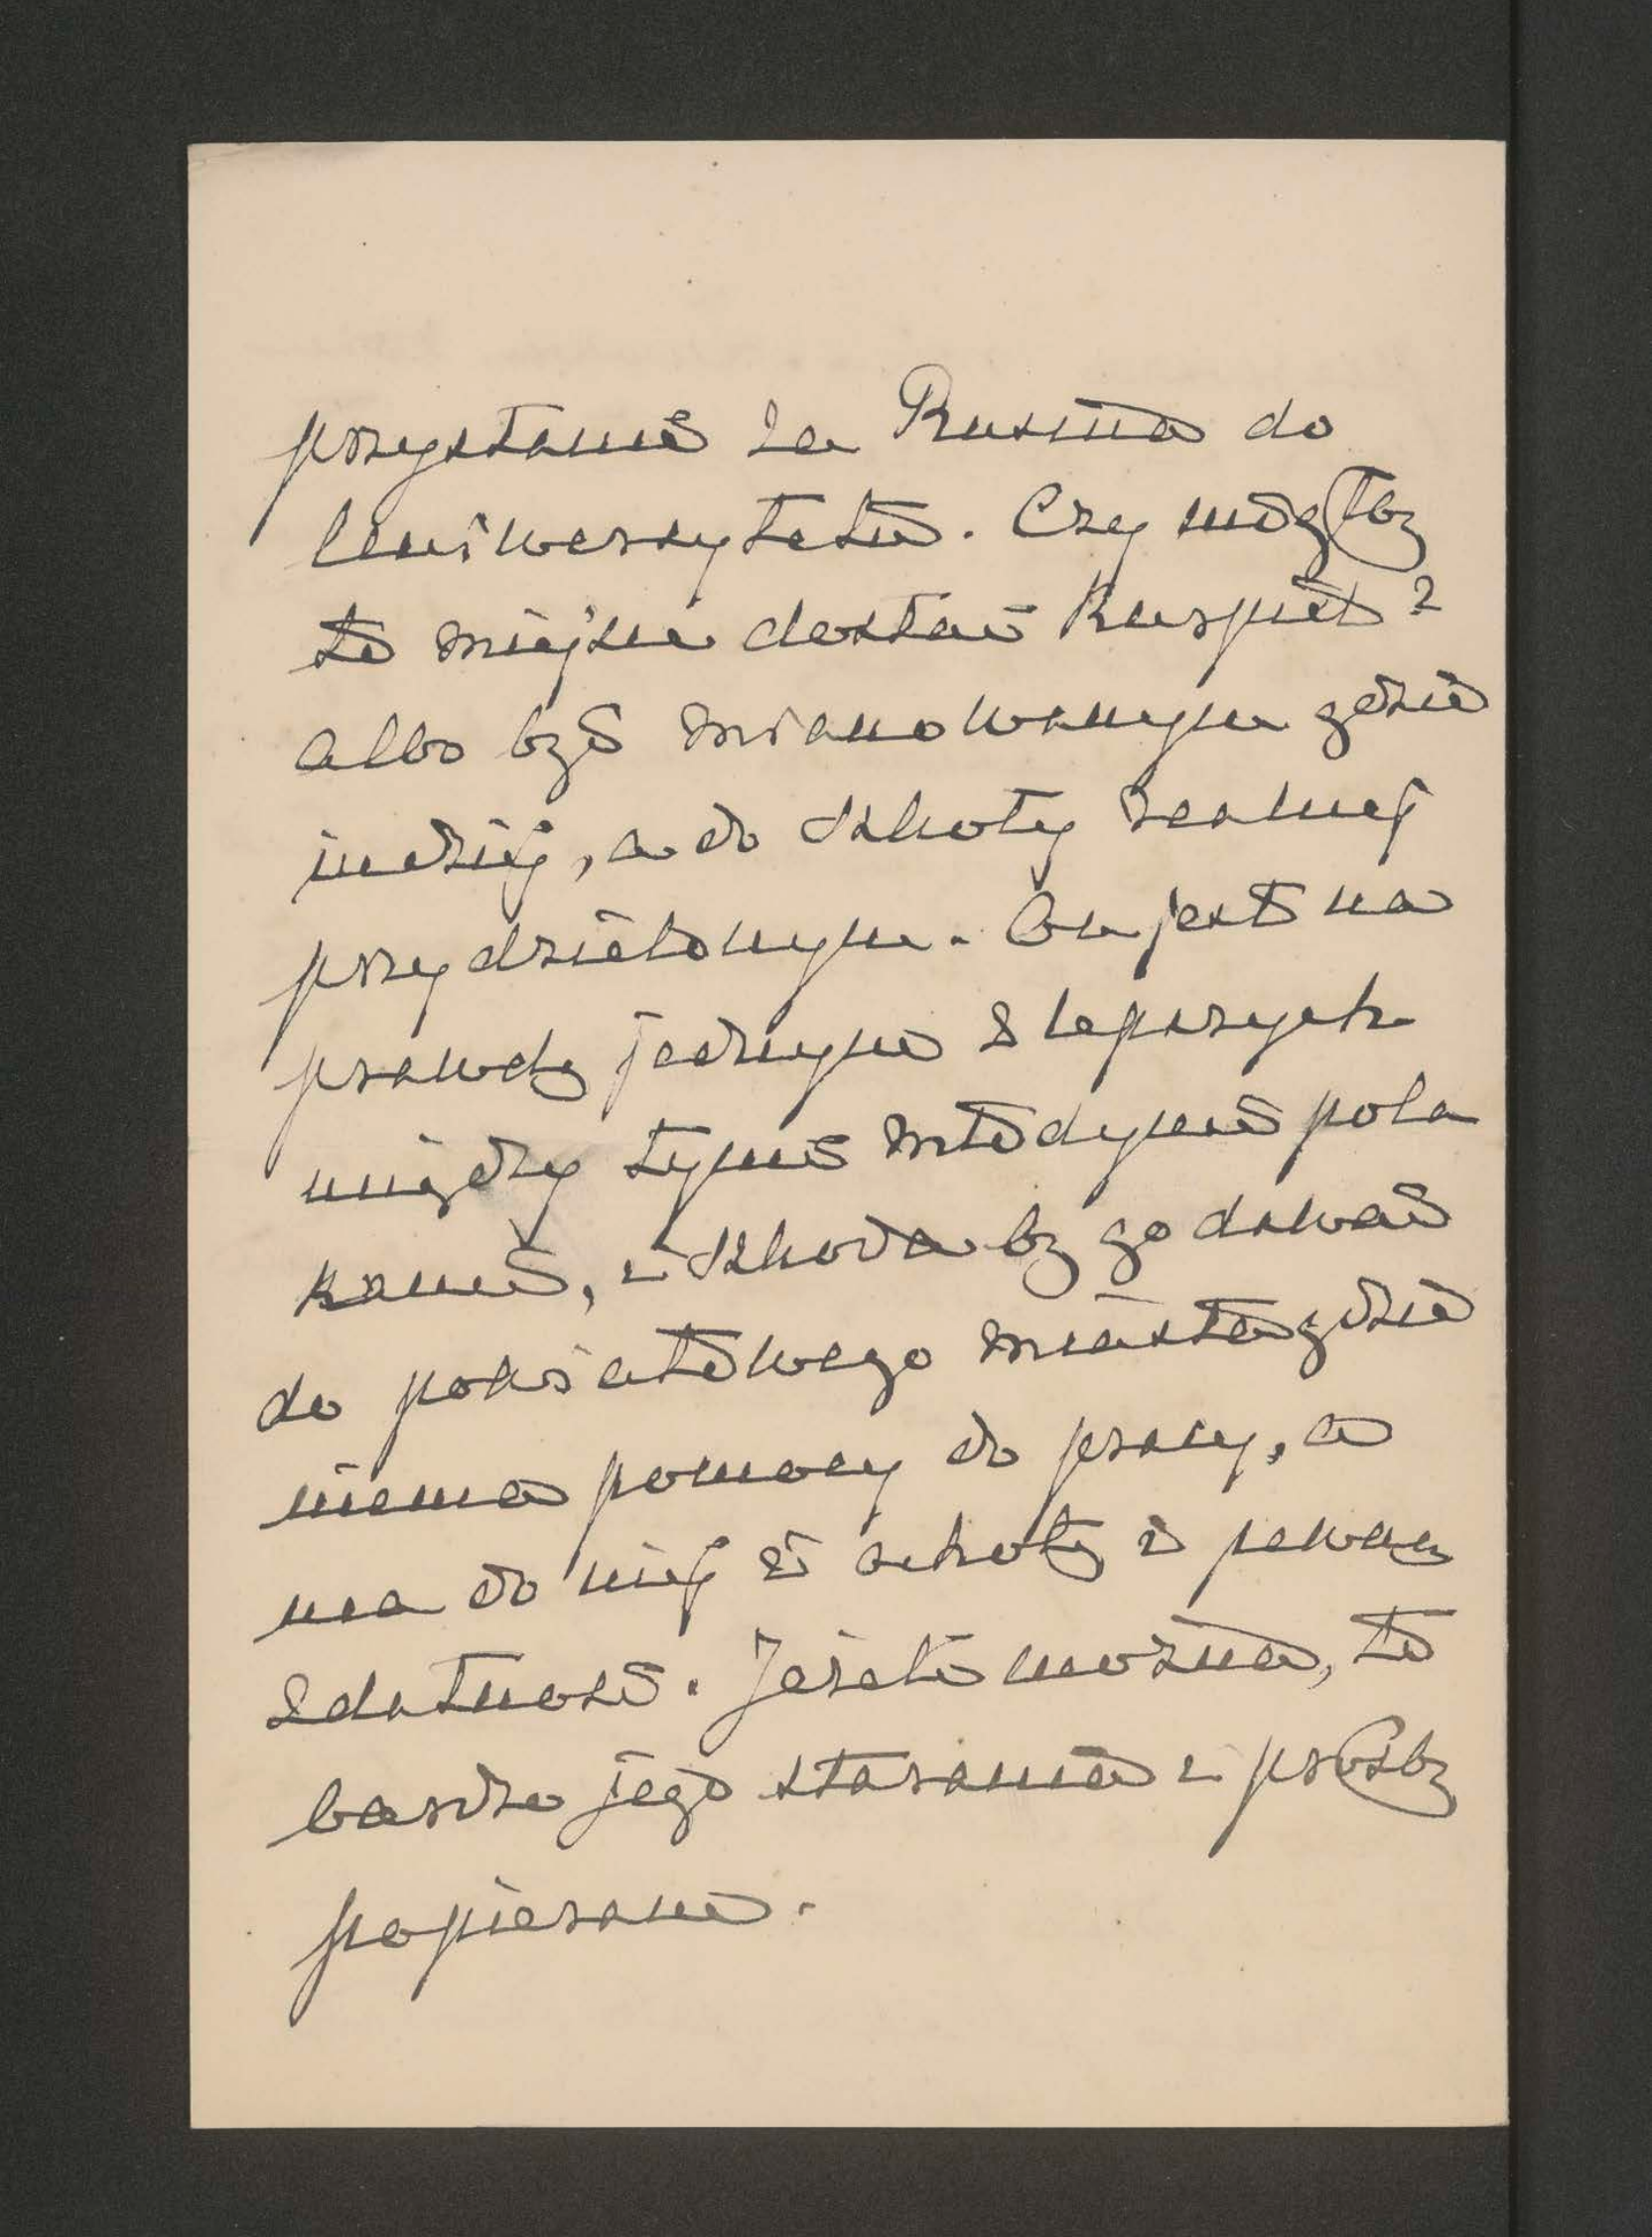 przystanie za Rusina do
Uniwersytetu. Czy mógłby
to miejsce dostać ?
albo być mianowanym gdzie
indziej, a do szkoły realnej
przydzielonym. On jest na
prawdę jednym z lepszych
między tymi młodymi pola
kami, i szkoda by go dawać
do powiatowego miasta gdzie
niema pomocy do pracy, a
ma do niej i ochotę i pewną
zdatność. Jeżeli można, to
bardzo jego starania i prośbę
popieram.